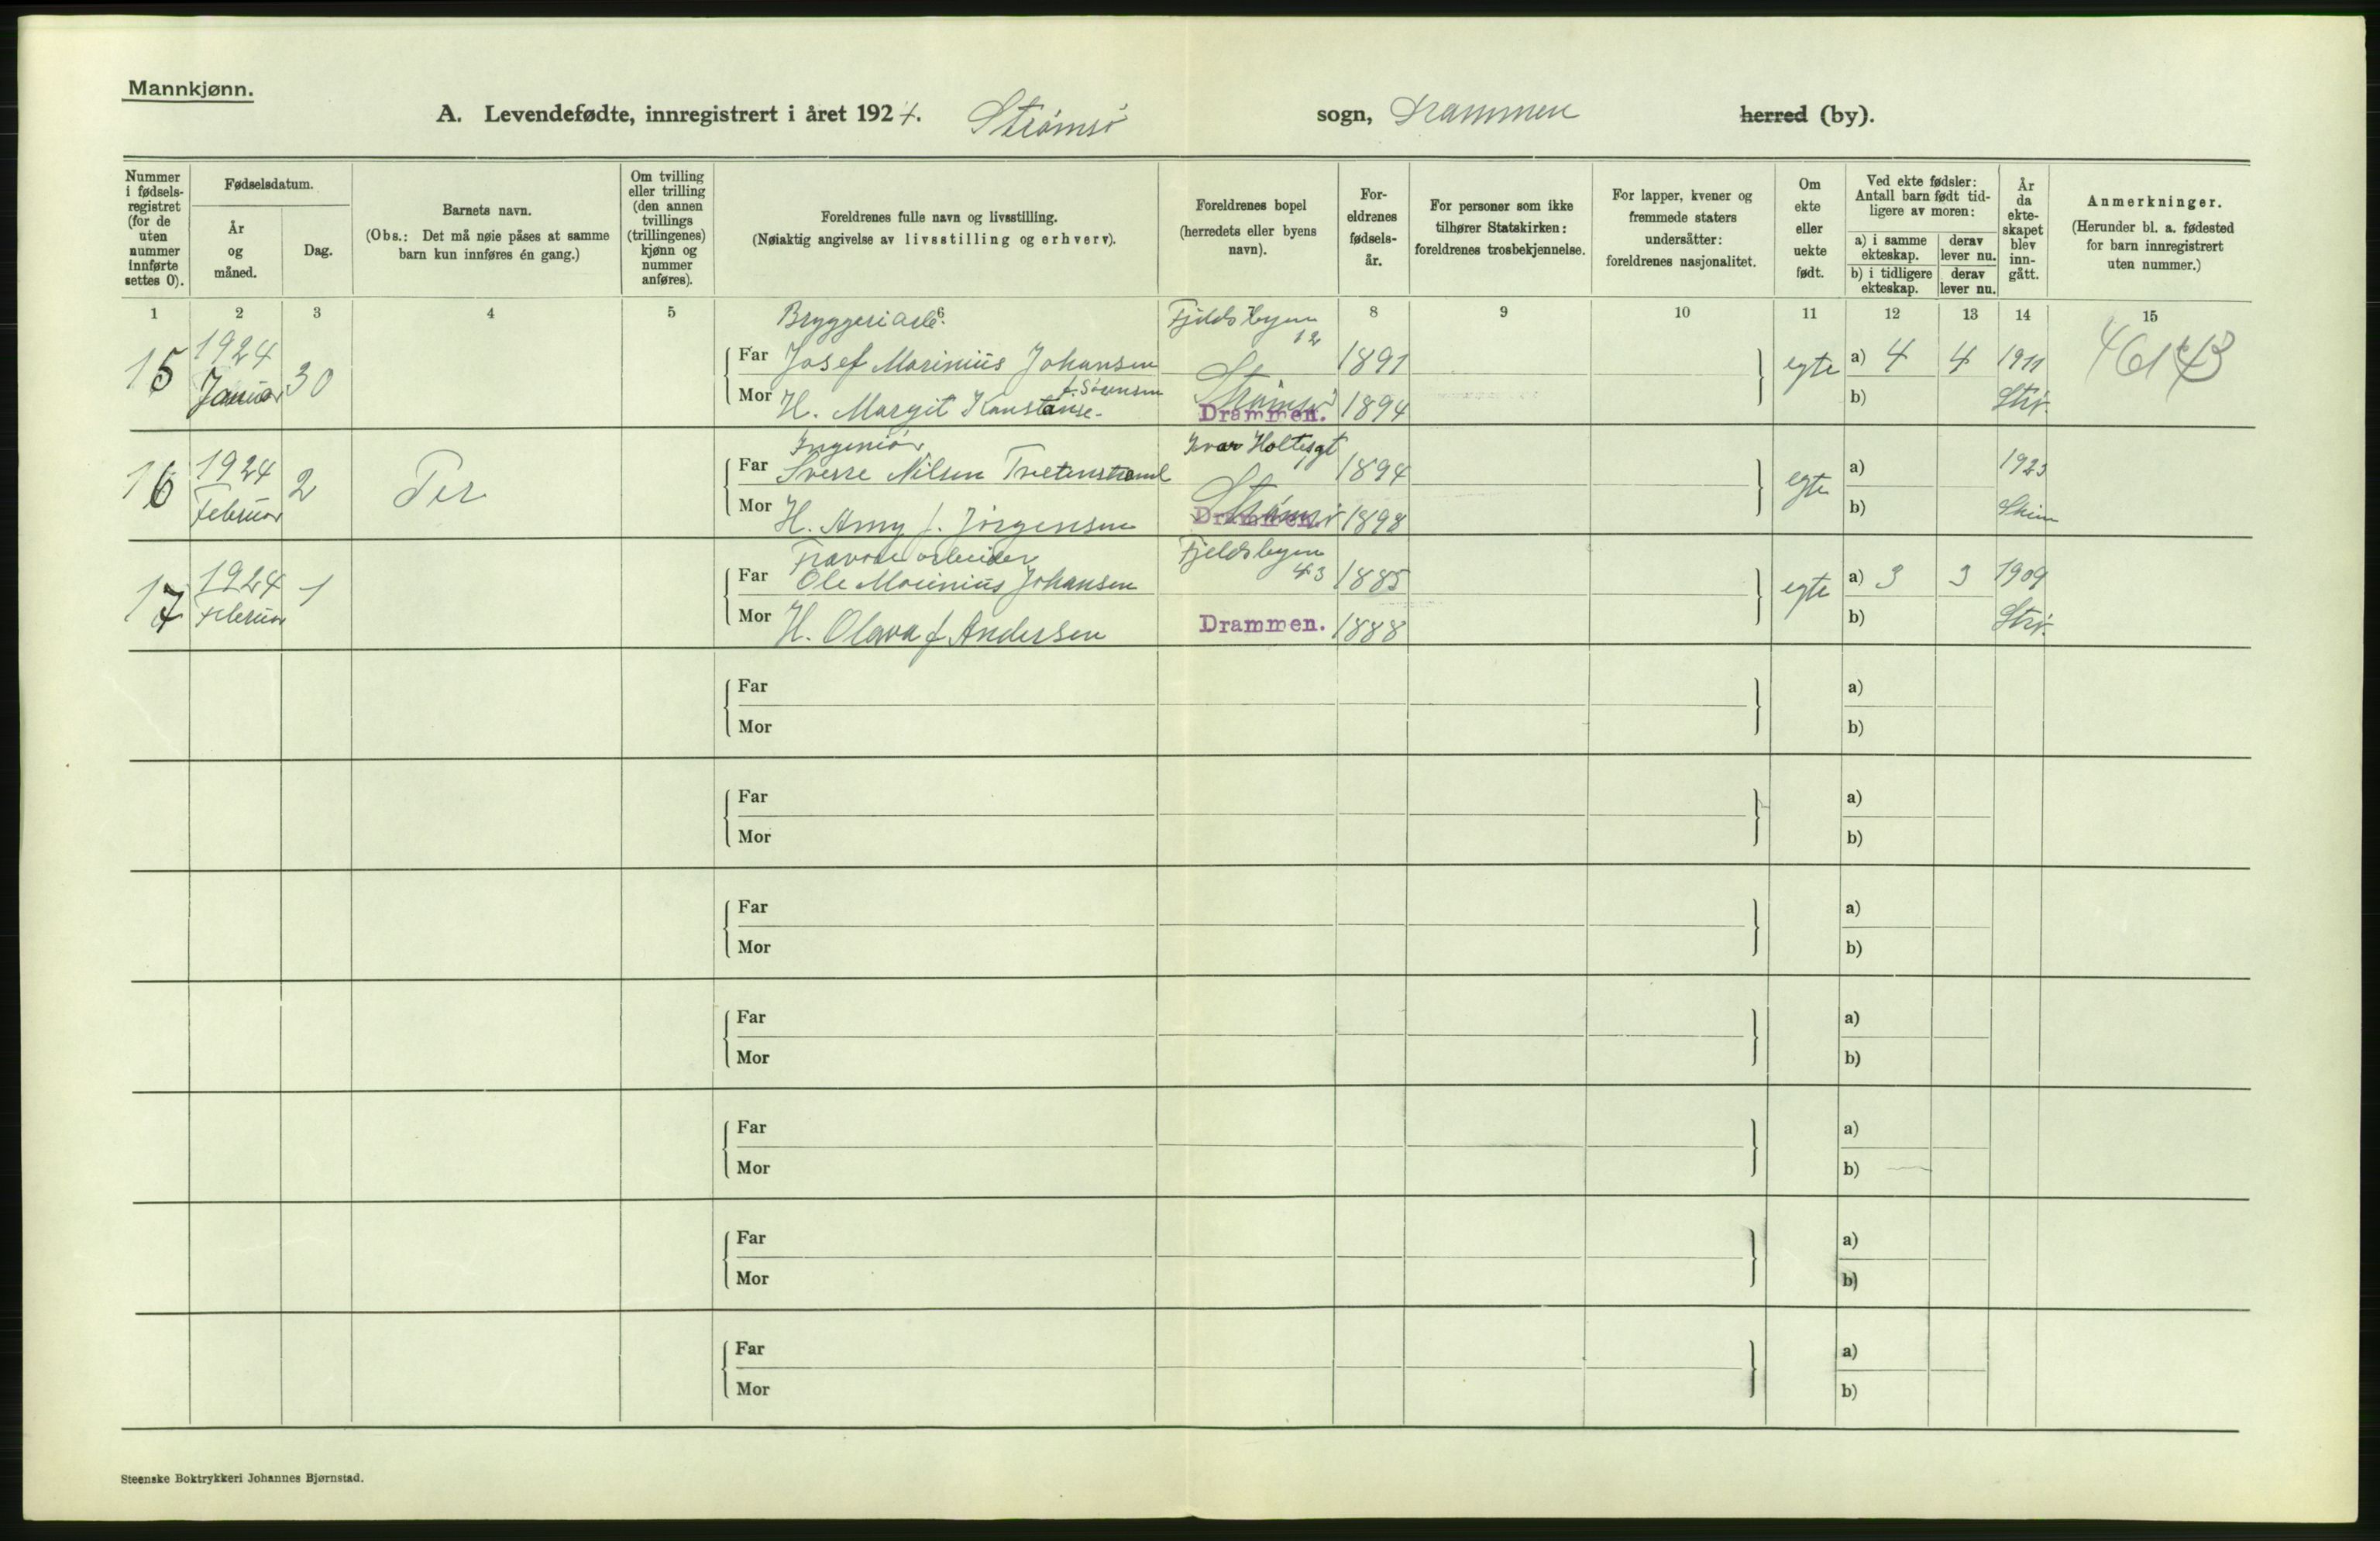 Mannkjønn.
A. Levendefødte, innregistrert i året 1924. Strømsø sogn, Drammen herred (by).
Nummer i fødsels-registret (for de uten nummer innførte settes 0).
Fødselsdatum.
År og måned.
Dag.
Barnets navn.
(Obs.: Det må nøie påses at samme barn kun innføres én gang.)
Om tvilling eller trilling (den annen tvillings (trillingenes) kjønn og nummer anføres).
Foreldrenes fulle navn og livsstilling.
(Nøiaktig angivelse av livsstilling og erhverv).
Foreldrenes bopel (herredets eller byens navn).
For-eldrenes fødsels-år.
For personer som ikke tilhører Statskirken: foreldrenes trosbekjennelse.
For lapper, kvener og fremmede staters undersåtter: foreldrenes nasjonalitet.
Om ekte eller uekte født.
Ved ekte fødsler: Antall barn født tid-ligere av moren:
a) i samme ekteskap.
derav lever nu.
b) i tidligere ekteskap.
derav lever nu.
År da ekte-skapet blev inn-gått.
Anmerkninger.
(Herunder bl. a. fødested for barn innregistrert uten nummer.)
1 2 3 4 5 6 7 8 9 10 11 12 13 14 15
Bryggeriarb. Fjeldsbyen 12
15 1924 Januar 30 Far Josef Marinius Johansen 1891 egte a) 4 4 1911
Mor H. Margit Konstanse f. Sørensen Strømsø Drammen. 1894 b) Strø.
Ingeniør Ivar Holtesgt
16 1924 Februar 2 Per Far Sverre Nilsen Tvetenstrand 1894 egte a) 1923
Mor H. Amy f. Jørgensen Strømsø Drammen. 1898 b) Skien
arbeider Fjeldsbyen 43
17 1924 Februar 1 Far Ole Marinius Johansen 1885 egte a) 3 3 1909
Mor H. Olava f Andersen Drammen. 1888 b) Strø.
Far a)
Mor b)
Far a)
Mor b)
Far a)
Mor b)
Far a)
Mor b)
Far a)
Mor b)
Far a)
Mor b)
Far a)
Mor b)
Steenske Boktrykkeri Johannes Bjørnstad.